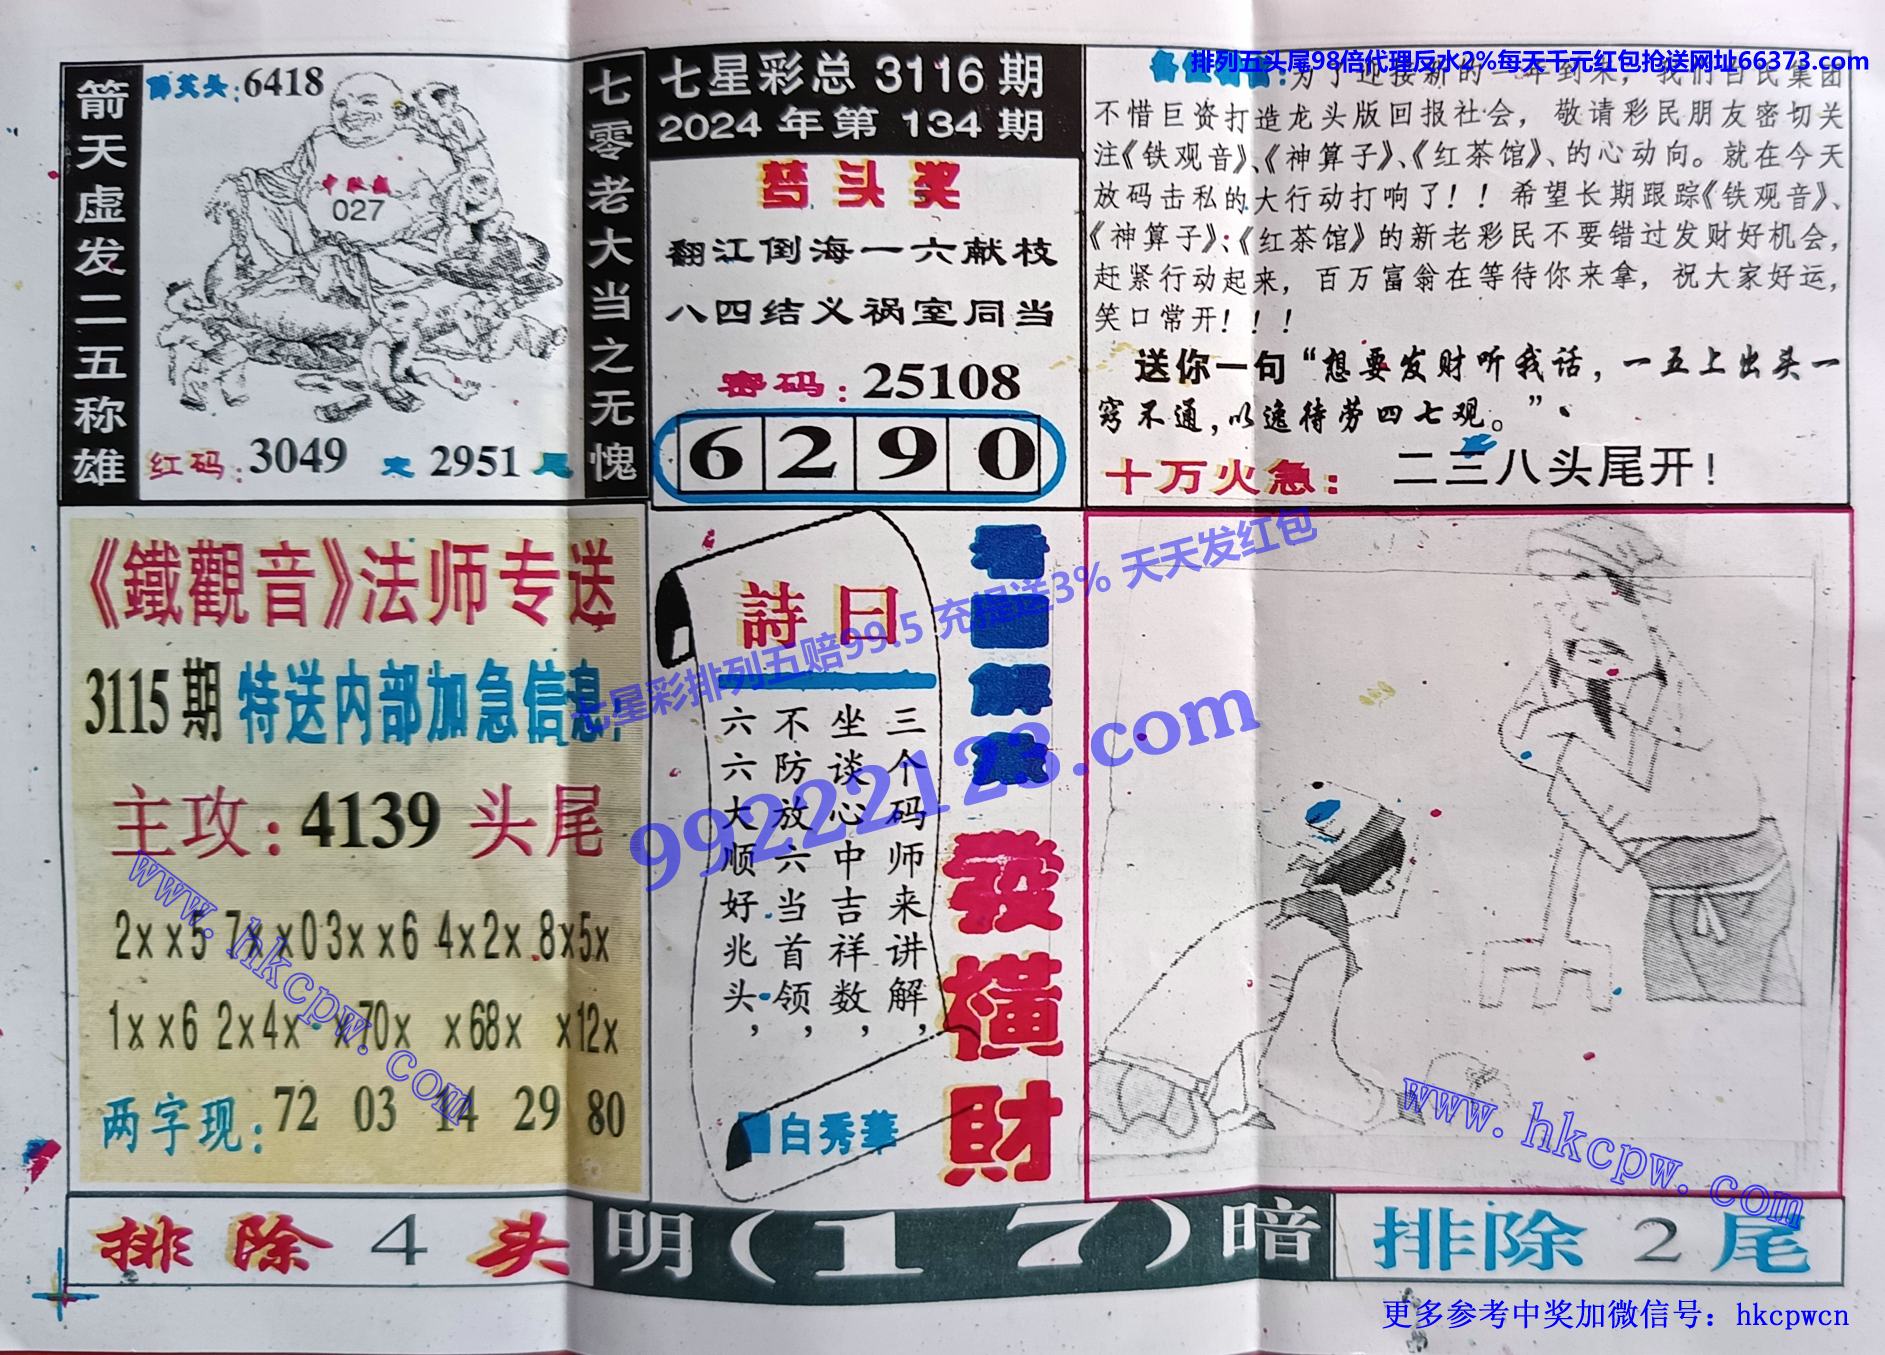 排列五头尾98倍代理反水2%每天千元红包抢送网址66373.com
箭天虚发二五称雄
6418
027
红码:3049 2951尾
七零老大当之无愧
七星彩总3116期
2024年第134期
梦头奖
翻江倒海一六献枝
八四结义祸室同当
密码:25108
6290
为了迎接新的一年到来,我们白民集团
不惜巨资打造龙头版回报社会,敬请彩民朋友密切关
注《铁观音》、《神算子》、《红茶馆》、的心动向。就在今天
放码击私的大行动打响了!!希望长期跟踪《铁观音》、
《神算子》、《红茶馆》的新老彩民不要错过发财好机会,
赶紧行动起来,百万富翁在等待你来拿,祝大家好运,
笑口常开!!!
送你一句“想要发财听我话,一五上出头一
窍不通,以逸待劳四七观。”
十万火急: 二三八头尾开!
《鐵觀音》法师专送
3115期 特送内部加急信息:
主攻:4139头尾
2xx5 7xx0 3xx6 4x2x 8x5x
1xx6 2x4x x70x x68x x12x
两字现: 72 03 14 29 80
詩曰
三个码师来讲解,
坐谈心中吉祥数,
不防放六当首领,
六六大顺好兆头,
白秀華
看图解码
發橫財
七星彩排列五赔99.5 充提送3% 天天发红包
99222123.com
www.hkcpw.com
www.hkcpw.com
排除4头
明(17)暗
排除2尾
更多参考中奖加微信号:hkcpwcn